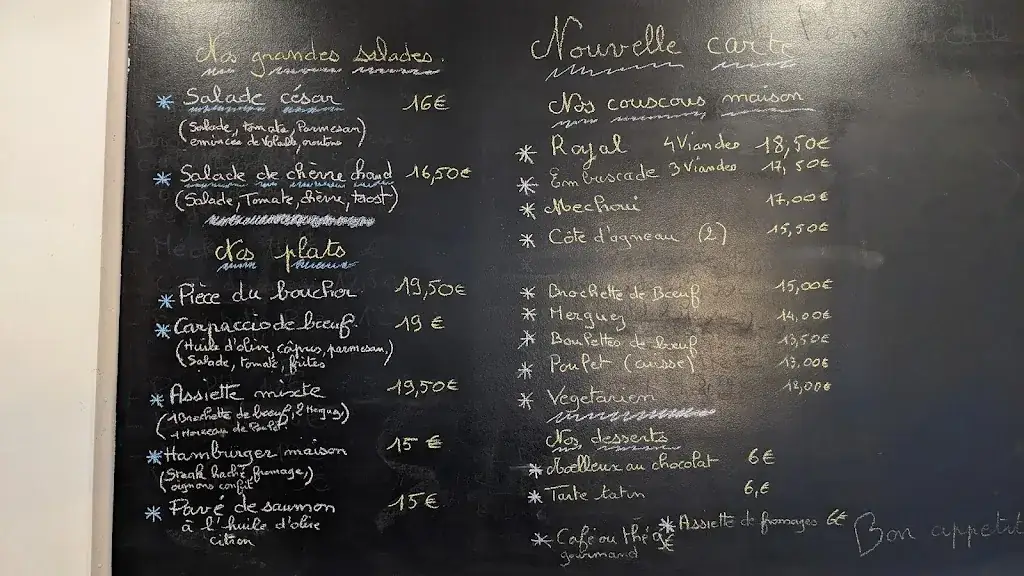 Nos grandes salades.
* Salade césar 16€
(Salade, tomate, Parmesan)
émincés de Volaille, croutons
* Salade de chèvre chaud 16,50€
(Salade, Tomate, chèvre, toast)
Nos plats
* Pièce du boucher 19,50€
* Carpaccio de bœuf. 19 €
(Huile d'olive, câprus, parmesan,)
Salade, tomate, frites
* Assiette mixte 19,50€
(1 Brochette de bœuf, 2 Merguez)
+ Morceau de Poulet
* Hamburger maison 15 €
(Steak haché, fromage,)
oignons confit
* Pavé de saumon 15€
à l'huile d'olive
citron
Nouvelle carte
Nos couscous maison
* Royal 4 Viandes 18,50€
* Embuscade 3 Viandes 17,50€
* Mechoui 17,00€
* Côte d'agneau (2) 15,50€
* Brochette de Bœuf 15,00€
* Merguez 14,00€
* Boulettes de bœuf 13,50€
* Poulet (cuisse) 13,00€
* Vegetarien 12,00€
Nos desserts
* Moelleux au chocolat 6€
* Tarte tatin 6,€
* Assiette de fromages 6€
* Café ou thé 9€
gourmand
Bon appetit